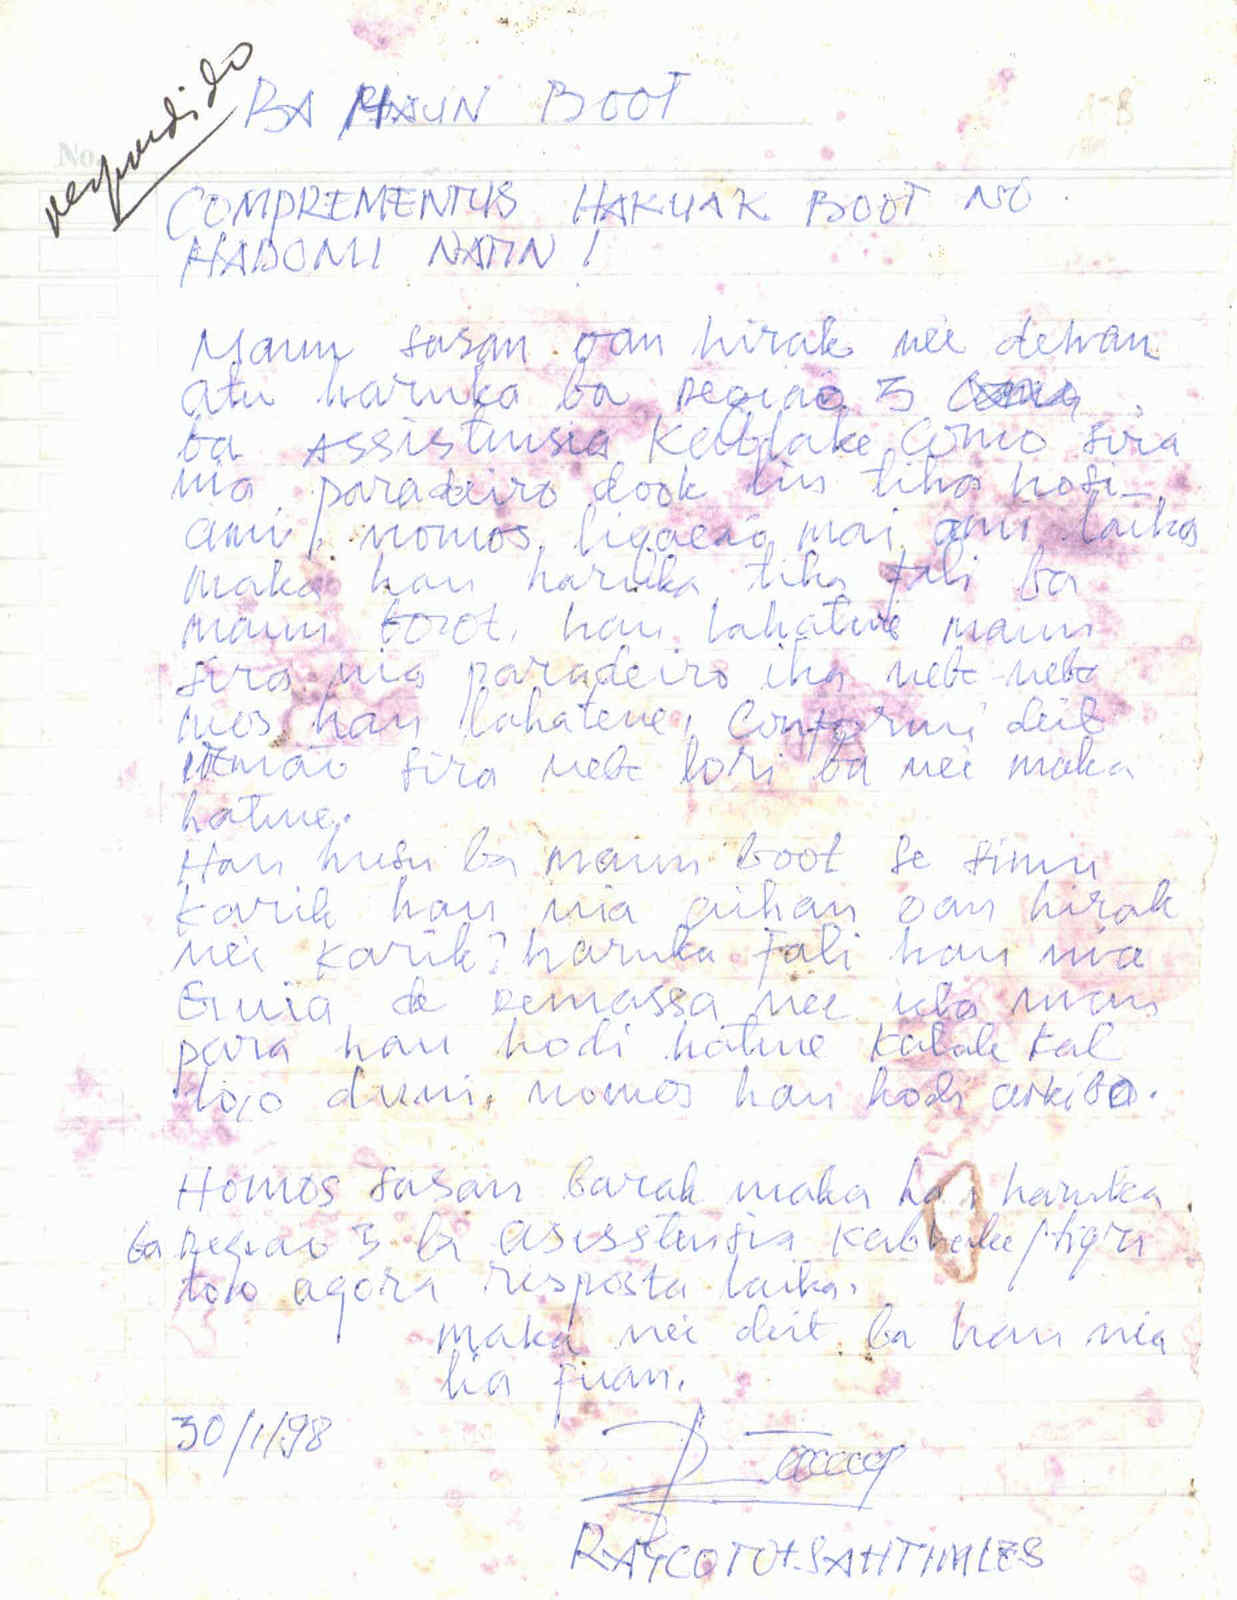 respondido
BA MAUN BOOT
No.
COMPREMENTUS HAKUAK BOOT NO
HADOMI NAFIN!
Maun sasan oan hirak nèe dehan
atu haruka ba região 3
ba Assistensia Kablake como sira
nia paradeiro dook liu tiha hosi
ami, nomos ligação mai ami laika
maka hau haruka tiha fali ba
maun boot, hau lahatene maun
sira nia paradeiro iha nebe-nebe
mos hau lahatene, Conformi deit
irmão sira nebe lori ba nèe maka
hatene.
Hau husu ba maun boot se simu
karik hau nia oan hirak
nèe karik? haruka fali hau nia
Guia de remassa nèe ida mai
para hau hodi hatene kalak kal
to,o duni, nomos hau hodi arkiba.
Homos sasan barak maka hau haruka
ba região 3 ba asisstensia Kablake
to,o agora resposta laika.
maka nèe deit ba hau nia
ha fuan.
30/1/98